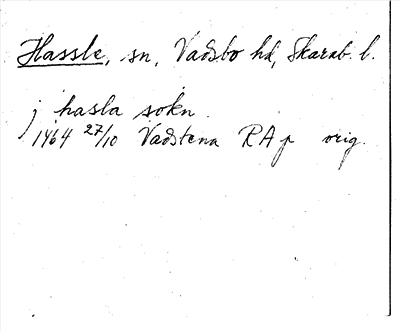 Hassle, sn, Vadsbo hd, Skarab. l.
j hasla sokn
1464 27/10 Vadstena RA p orig.